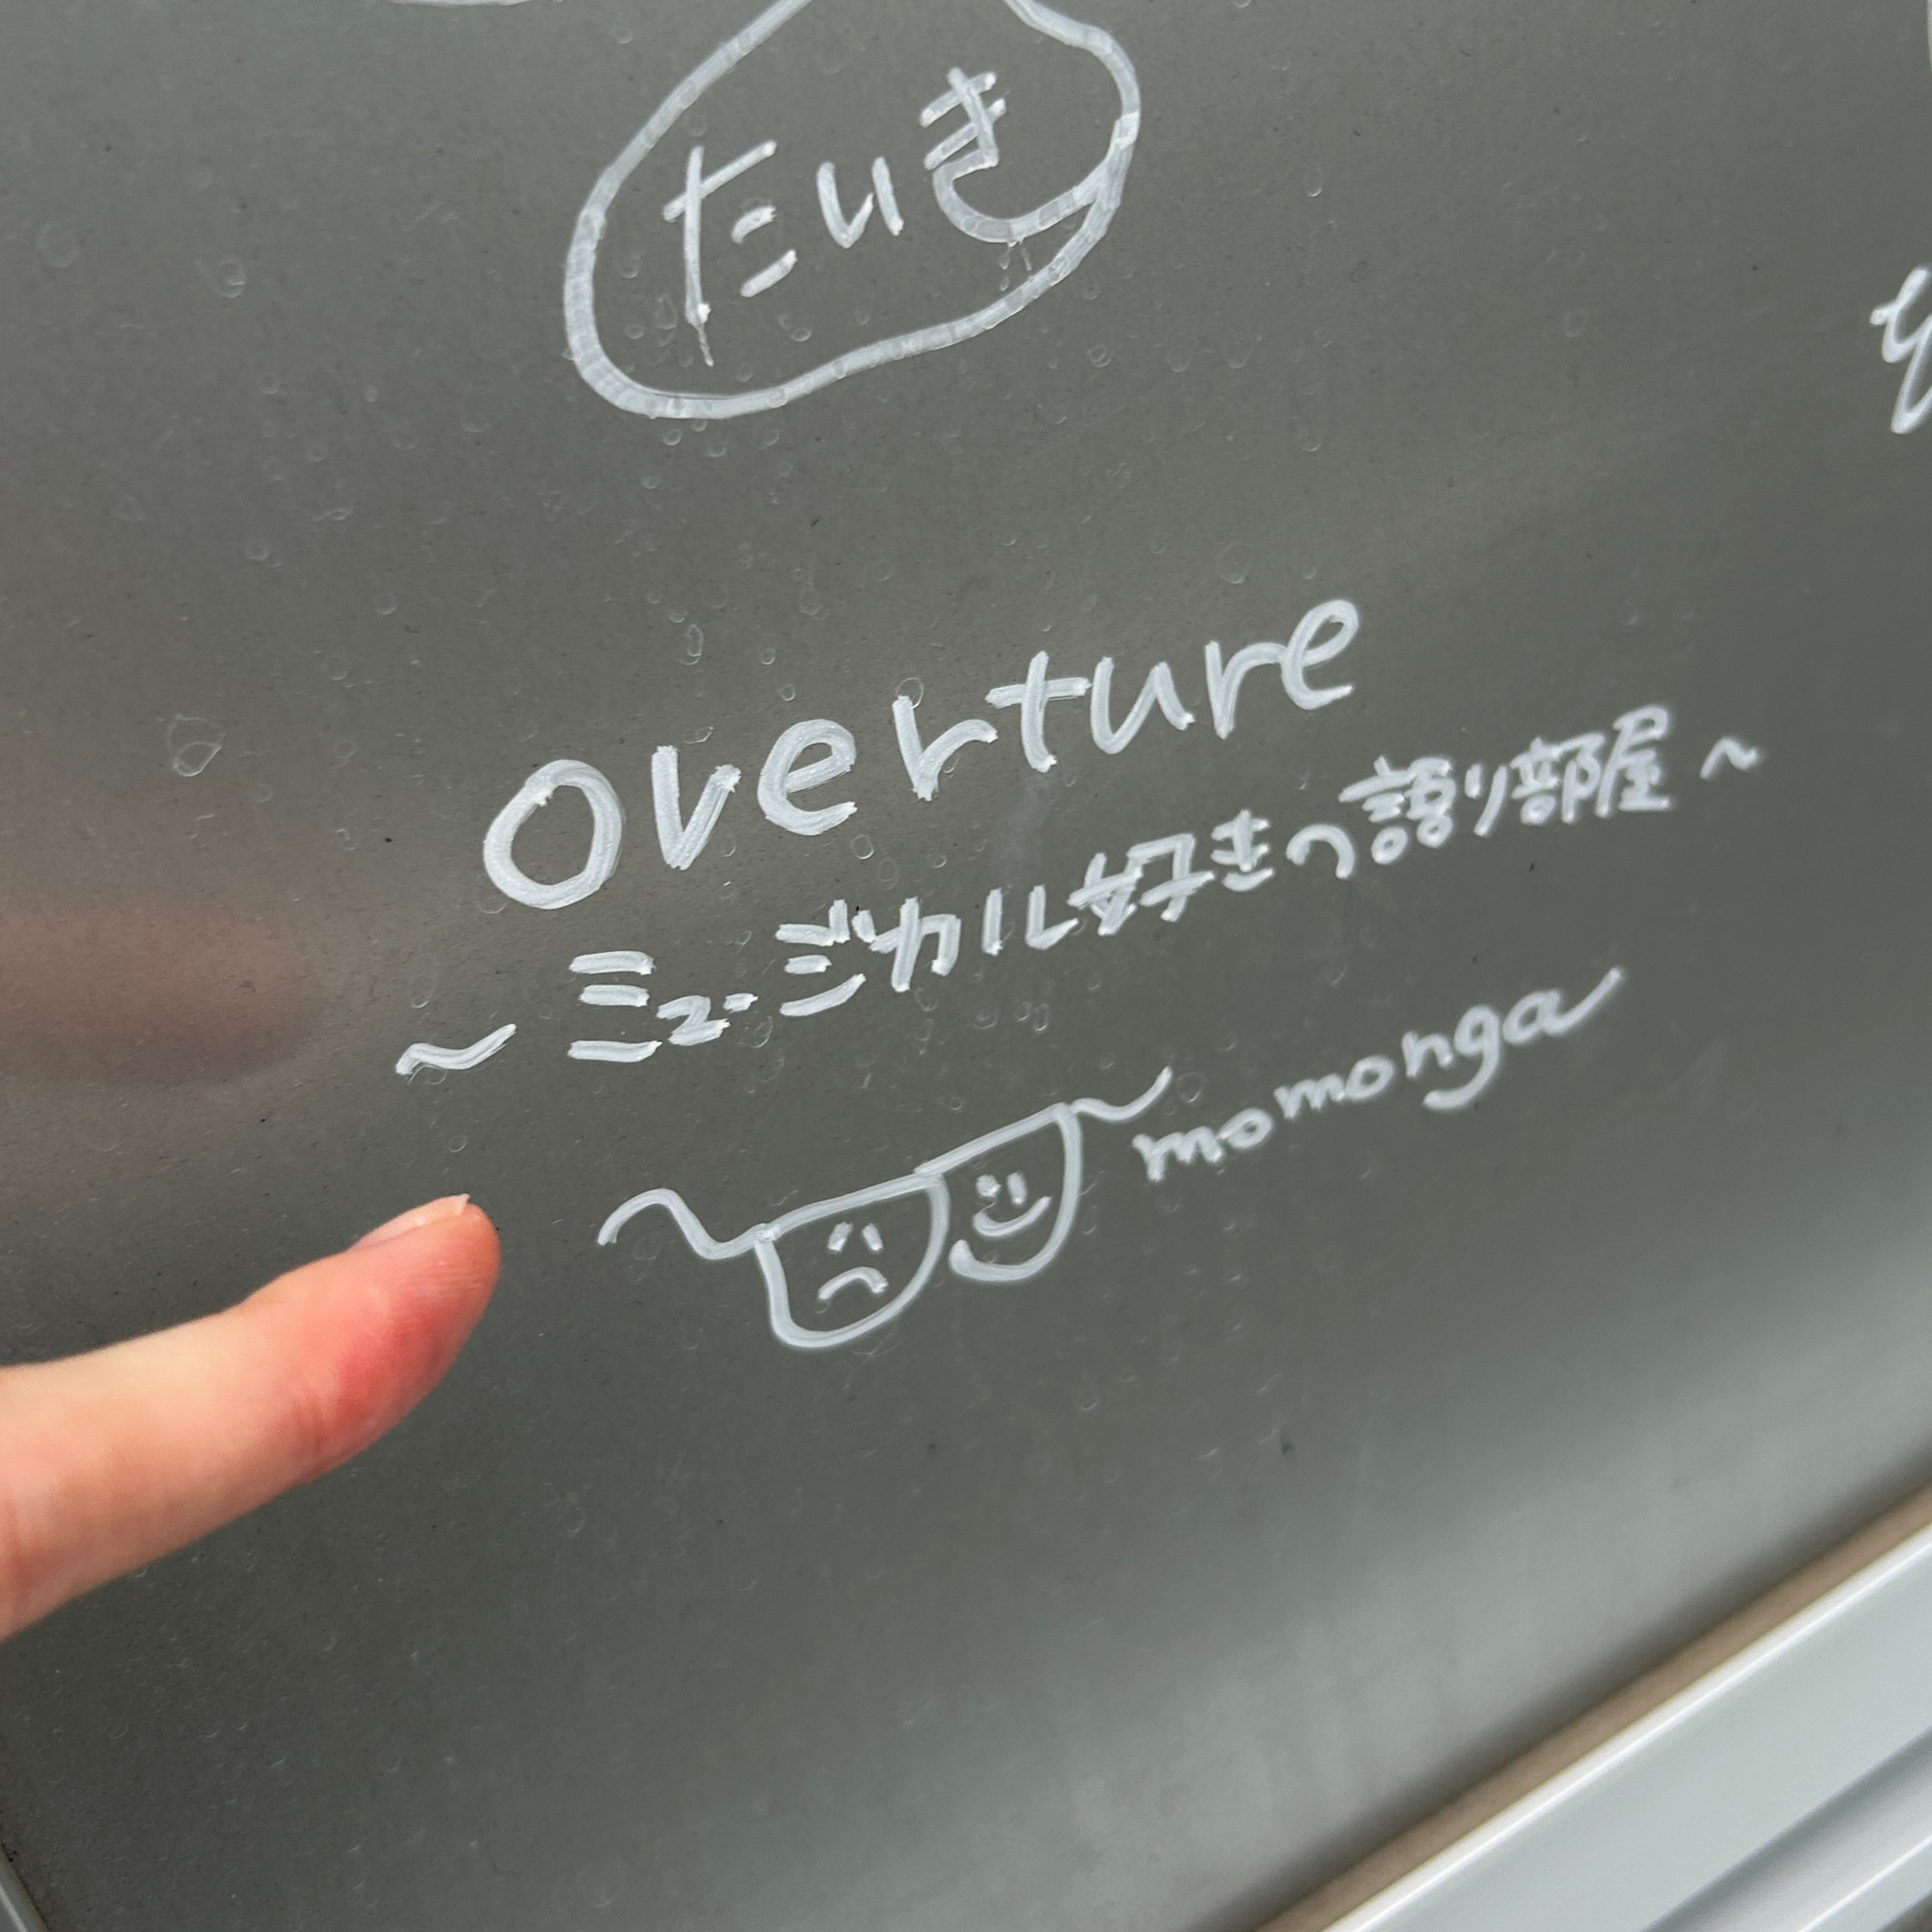 たいき
Overture
～ミュージカル好きの語り部屋～
momonga